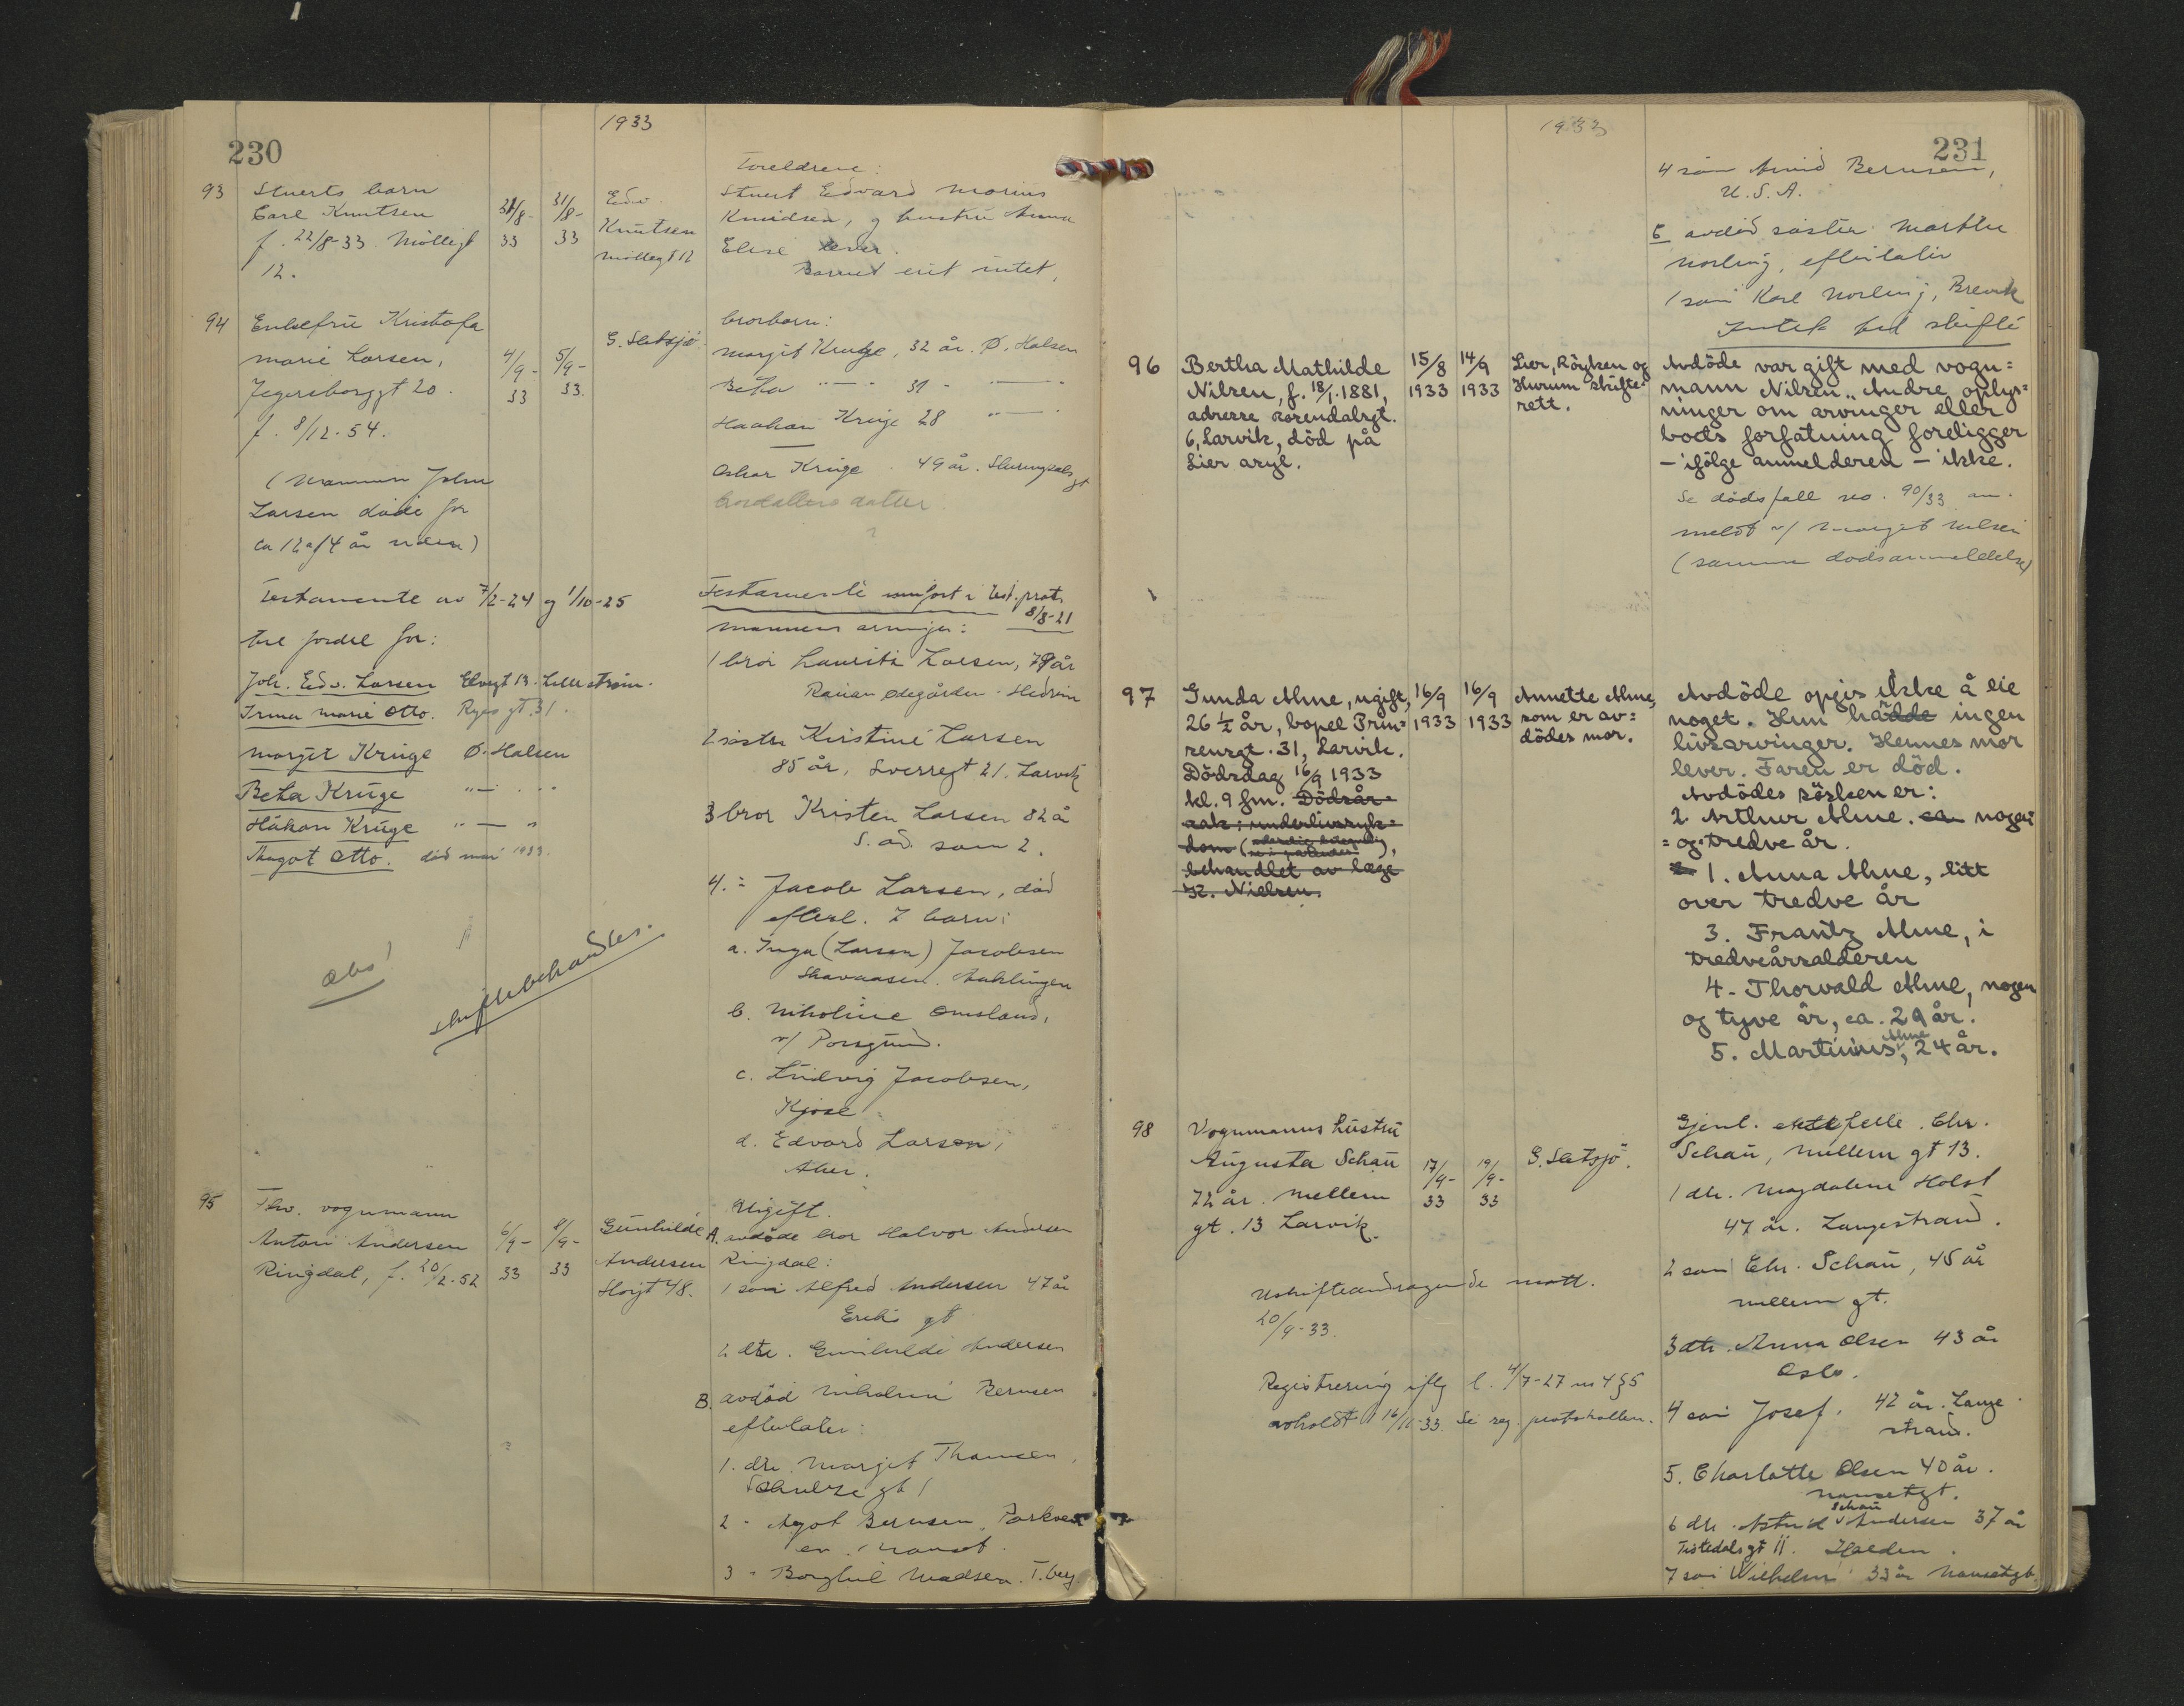 230
1933
93
Stuerts barn
Carl Knutsen
f. 22/8-33 Möllegt
12.
31/8-33
31/8-33
Edv.
Knutsen
Möllegt 12
Foreldrene:
Stuert Edvard Marius
Knudsen, og hustru Anna
Elise lever.
Barnet eiet intet.
94
Enkefru Kristofa
Marie Larsen,
Jegersborggt 20.
f. 8/12-54.
(Mannen John
Larsen döde for
ca 12 a 14 år siden)
4/9-33
5/9-33.
G. Sletsjö.
brorbarn:
Margit Kruge, 32 år. Ö. Halsen
Beta " — " 31 - " — "
Haakon Kruge 28 " — "
Oskar Kruge. 49 år.
datter
?
Testamente av 7/2-24 og 1/10-25
til fordel for:
Joh. Edv. Larsen Elvegt 13. Lilleström.
Irma Marie Otto. Ryes gt. 31.
Margit Kruge Ö. Halsen
Beta Kruge " — " "
Håkon Kruge " — "
Aagot Otto. död mai 1933.
Obs!
skiftebehandles.
Testamente innfört i test.prot.
8/8-21
Mannens arvinger:
1 bror Laurits Larsen, 79 år
Ödegården - Hedrum
2 söster Kirstine Larsen
85 år, Sverresgt 21. Larvik
3 bror Kristen Larsen 82 å
S. ad. som 2.
4. = Jacob Larsen, död
efterl. 7 barn:
a. Inga (Larsen) Jacobsen
b. Nikoline Omsland,
v/ Porsgrund.
c. Ludvig Jacobsen,
Kjose
d. Edvard Larsen,
95
Fhv. vognmann
Anton Andersen
Ringdal, f. 20/2-52
6/9-33
8/9-33
Gunhilde
Andersen
Haigt 48.
Ugift.
A. avdöde bror Halvor Andersen
Ringdal:
1 sön Alfred Andersen 47 år
Eriks gt
2 dtr. Gunhilde Andersen
B. avdöd Nikoline Bernsen
efterlater:
1. dtr. Margit Thomsen,
Schultze gt 1
2 - Agot Bernsen, Parkvei-
en. Nanset.
3 - Borghil Madsen. T.berg
231
1933
4 sön Arvid Bernsen,
U.S.A.
C avdöd söster Marthe
Norling, efterlater
1 sön Karl Norling, Brevik
Inntet bud skifte
96
Bertha Mathilde
Nilsen, f. 18/1.1881,
adresse Rosendalsgt.
6, Larvik, död på
Lier asyl.
15/8
1933
14/9
1933
Lier, Röyken og
Hurum skifte-
rett.
Avdöde var gift med vogn=
mann Nilsen. Andre oplys=
ninger om arvinger eller
boets forfatning foreligger
– ifölge anmelderen – ikke.
Se dödsfall no. 90/33 an-
meldt v/ Margit Nilsen
(samme dödsanmeldelse)
97
Gunda Alme, ugift,
26 ½ år, bopel Prin=
sensgt. 31, Larvik.
Dödsdag 16/9 1933
kl. 9 fm. Dödsår=
sak: underlivssyk=
dom
behandlet av læge
K. Nielsen.
16/9
1933
16/9
1933
Annette Alme,
som er av=
dödes mor.
Avdöde opgis ikke å eie
noget. Hun hadde ingen
livsarvinger. Hennes mor
lever. Faren er död.
Avdödes sösken er:
2. Arthur Alme. ca nogen=
=og=tredve år.
1. Anna Alme, litt
over tredve år
3. Frantz Alme, i
tredveårsalderen
4. Thorvald Alme, nogen
og tyve år, ca. 29 år.
5. Martinius Alme, 24 år.
98
Vognmanns hustru
Augusta Schau
72 år. Mellem
gt. 13 Larvik.
17/9-33
19/9-33
G. Sletsjö.
Uskifteandragende mott.
20/9-33.
Registrering iflg l. 4/7-27 nr 4 § 5
avholdt 16/11-33. Se reg. protokollen.
Gjenl. ektefelle. Chr.
Schau, Mellem gt 13.
1 dtr. Magdalene Holst
47 år. Langestrand.
2 sön Chr. Schau, 45 år
mellem gt.
3 dtr. Anna Olsen 43 år
Oslo.
4 sön Josef. 42 år. Lange
strand.
5. Charlotte Olsen 40 år.
Nansetgt.
6 dtr. Astrid Schau Andersen 37 år
Tistedalsgt 11. Halden.
7 sön Wilhelm 33 år Nansetgt.